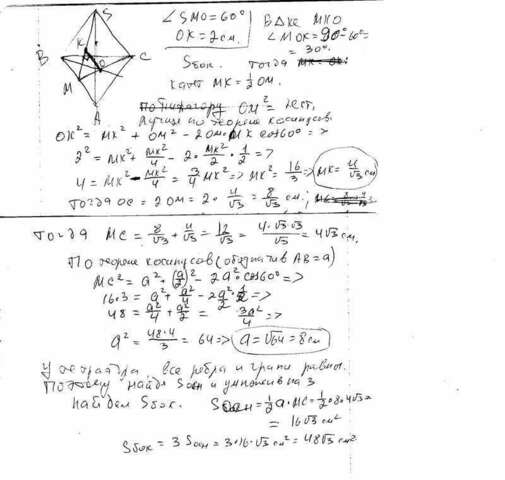 S
K
B
C
M
O
A
∠SMO=60°
OK=2см.
Sбок.
В Δке МКО
∠МОК=90°-60°=
=30°.
Тогда
кат МК=½ОМ.
ОМ²=
по теореме косинусов.
OK²=MK²+OM²-2OM·MK cos60° =>
2²=MK²+MK²/4-2·MK²/2·1/2 =>
4=MK²-MK²/4=3/4MK² => MK²=16/3 => MK=4/√3 см
Тогда OC=2OM=2·4/√3=8/√3 см.;
Тогда MC=8/√3+4/√3=12/√3=4·√3·√3/√3=4√3 см.
По теореме косинусов (обозначив AB=a)
MC²=a²+(a/2)²-2a²·cos60° =>
16·3=a²+a²/4-2a²/2·1/2 =>
48=a²/4+a²/2=3a²/4 =>
a²=48·4/3=64 => a=√64=8см
У тетраэдра все ребра и грани равны.
Поэтому найдя Sосн и умножив на 3
найдем Sбок. Sосн=½a·MC=½·8·4√3=
=16√3 см²
Sбок=3Sосн=3·16·√3 см²=48√3 см²